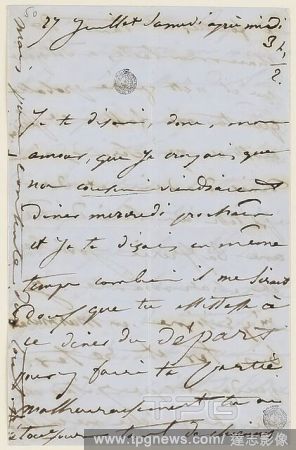 27 Juillet Samedi après midi
3 h ½
Je te disais donc, mon
amour, que je croyais que
nos cousins viendraient
diner mercredi prochain
et je te disais en même
temps combien il me serait
doux que tu assistasse à
ce diner du départ
pour y faire ta partie
malheureusement tu as
toujours tant de
TPG
www.tpgnews.com / 達志影像